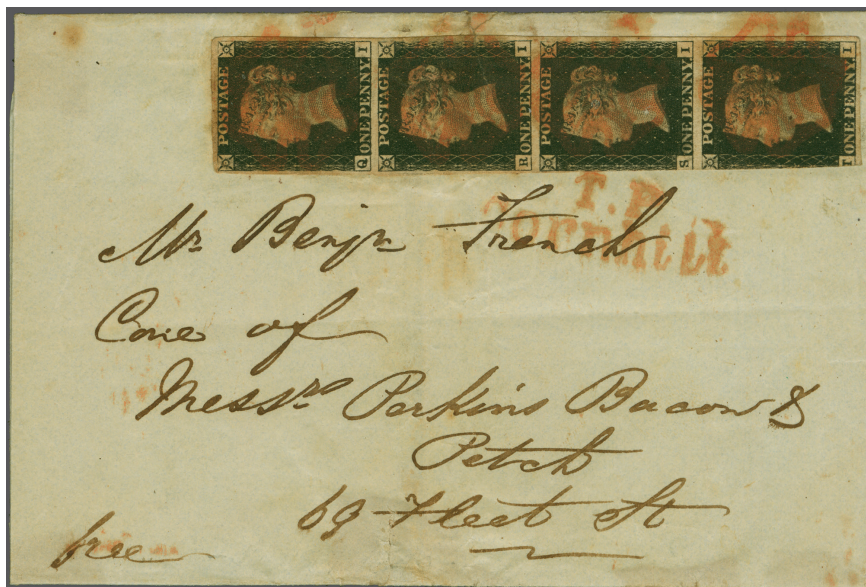 POSTAGE ONE PENNY Q I
POSTAGE ONE PENNY R I
POSTAGE ONE PENNY S I
POSTAGE ONE PENNY T I
T.P
Cornhill
Mr. Benjn French
Care of
Messrs Perkins Bacon &
Petch
69 Fleet St
free